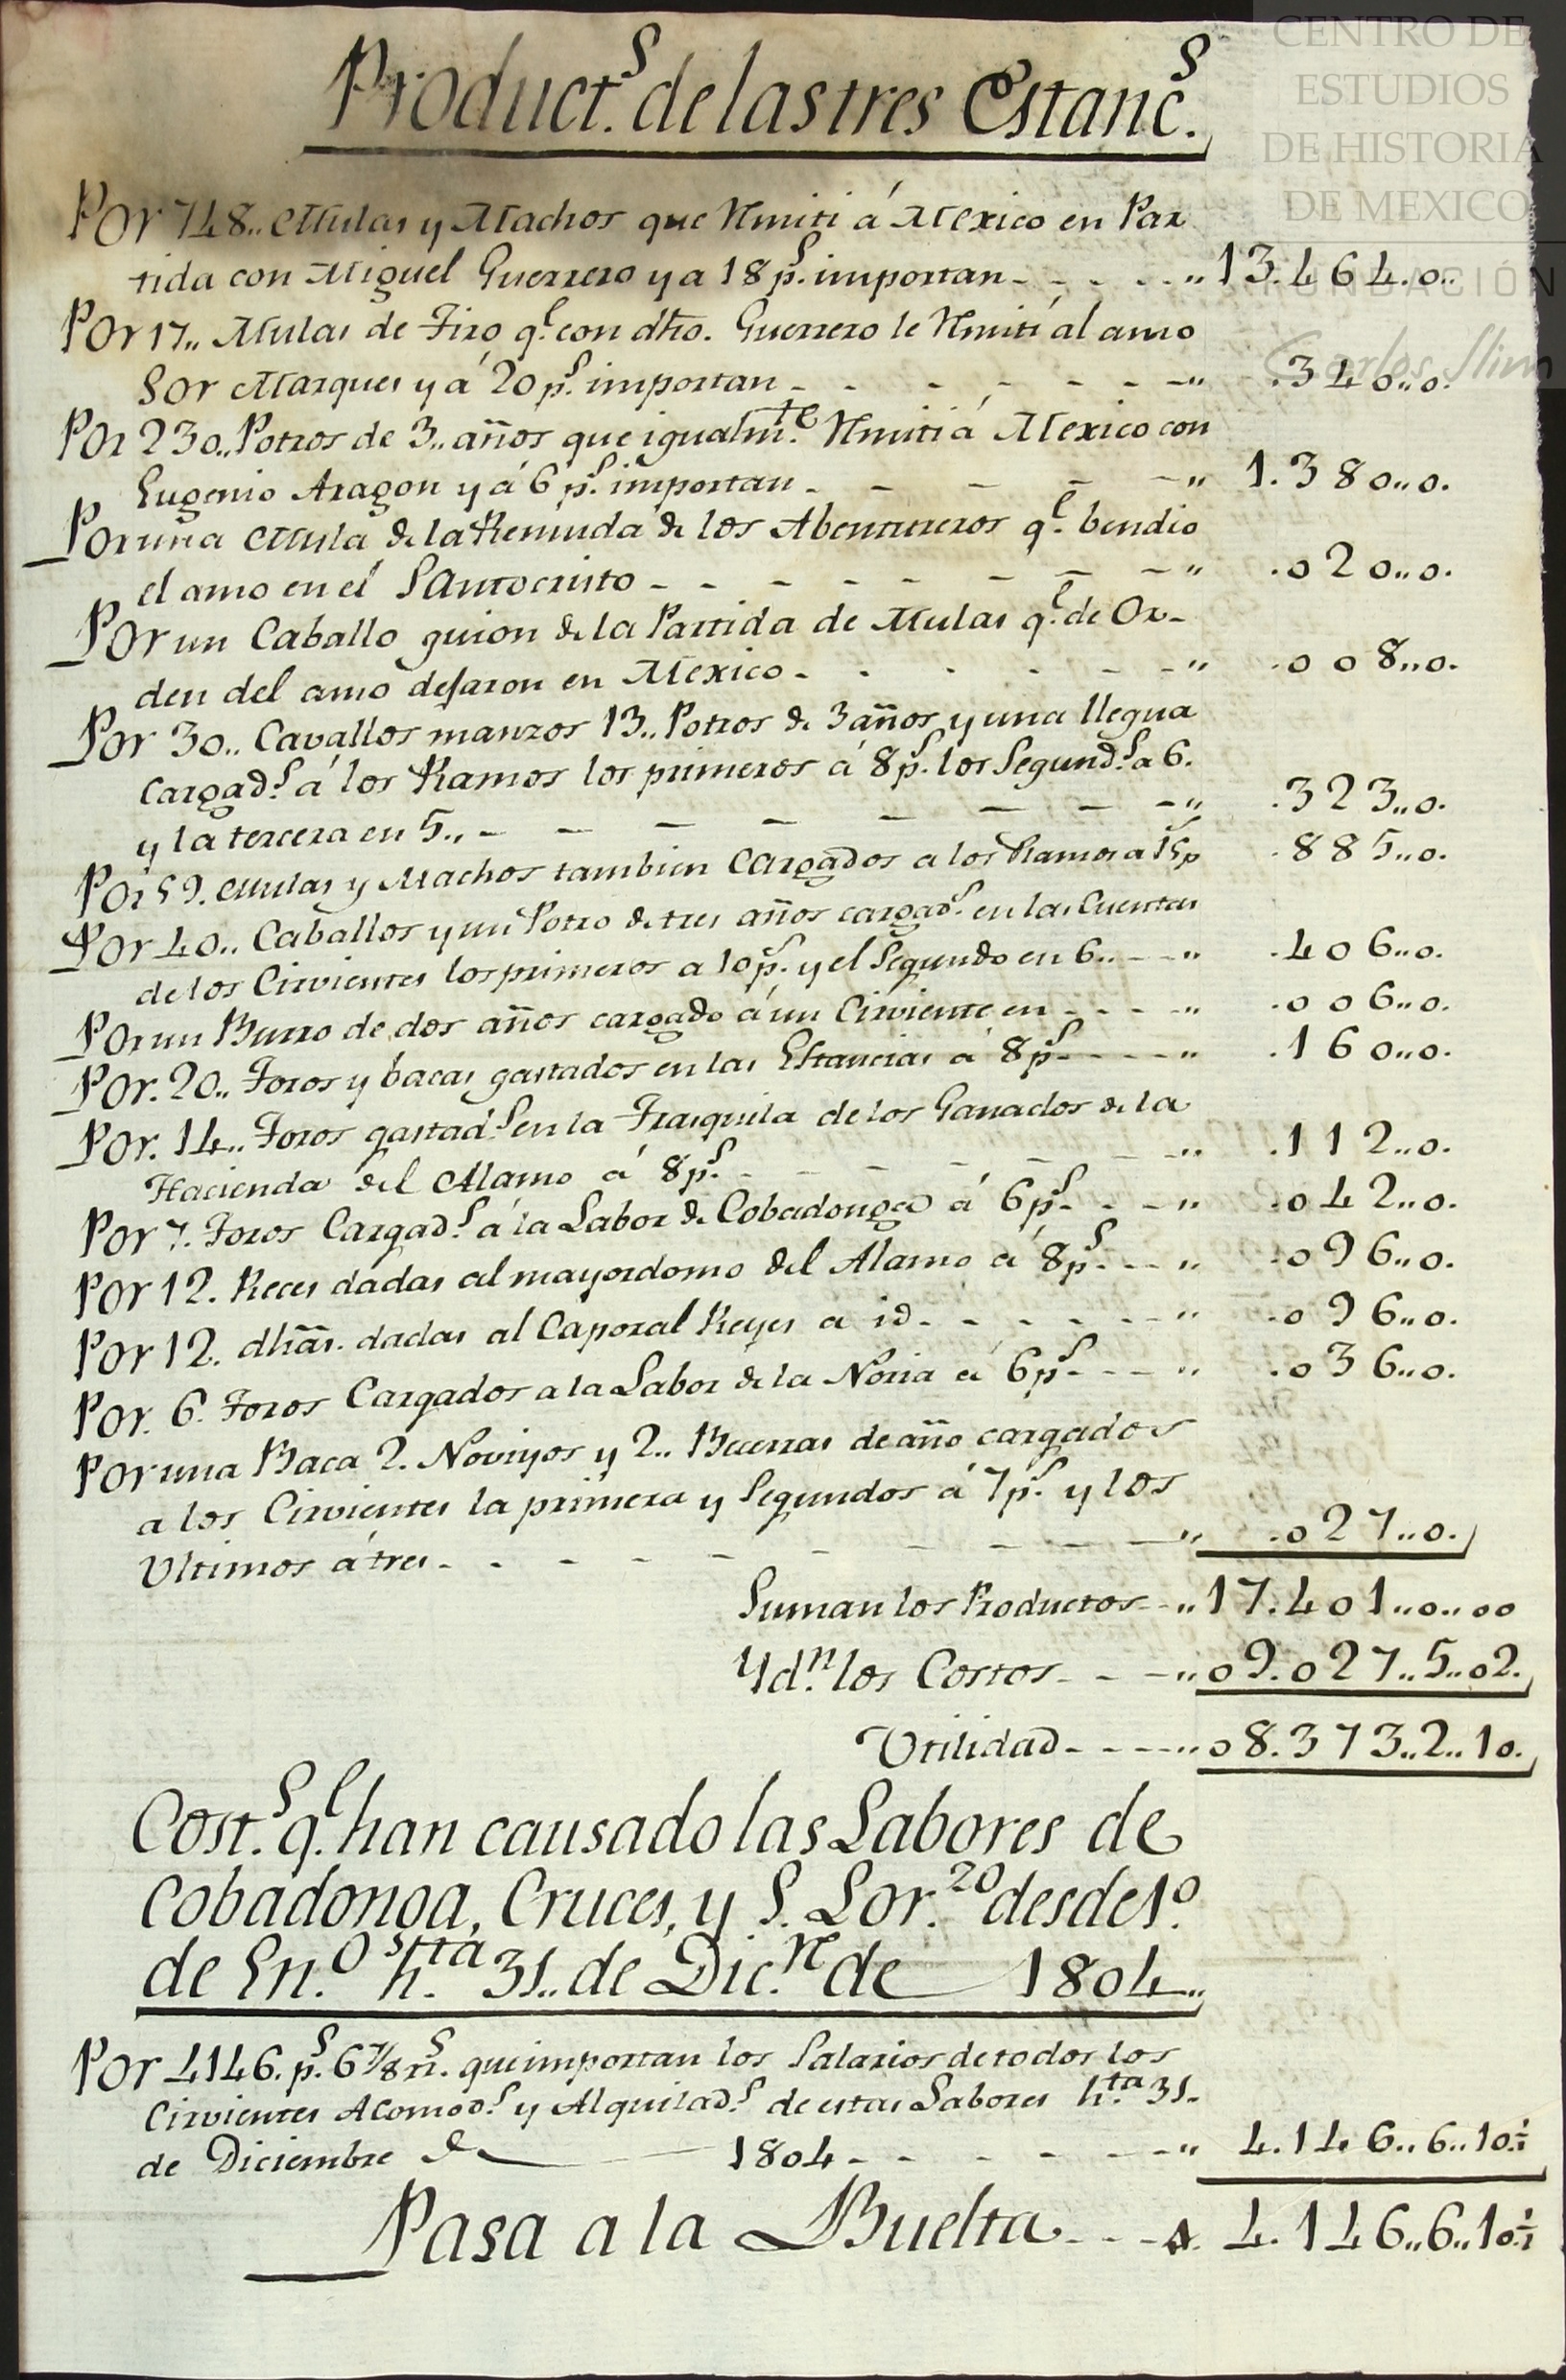 Product.s de las tres Estanc.s
CENTRO DE
ESTUDIOS
DE HISTORIA
DE MEXICO
FUNDACIÓN
Carlos Slim
Por 748.. Mulas y Machos que Rmiti á Mexico en Par
tida con Miguel Guerrero y a 18 p.s importan - - - - .. 13.464.0..
Por 17.. Mulas de Tiro q.e con dho. Guerrero le Rmití al amo
Sor Marques y á 20 p.s importan - - - - - - - .. .340..0.
Por 230.. Potros de 3.. años que igualm.te Rmiti á Mexico con
Eugenio Aragon y á 6 p.s importan - - - - - .. 1.380..0.
Por una Mula de la Remuda de los Abentureros q.e bendio
el amo en el Santocristo - - - - - - - - .. .020..0.
Por un Caballo guion de la Partida de Mulas q.e de Or-
den del amo dejaron en Mexico - - - - - - .. .008..0.
Por 30.. Cavallos manzos 13.. Potros de 3 años y una llegua
Cargad.s á los Ramos los primeros á 8 p.s los Segund.s a 6.
y la tercera en 5.. - - - - - - - - .. .323..0.
Por 59. Mulas y Machos tambien Cargados a los Ramos a 15 p.s .885..0.
Por 40.. Caballos y un Potro de tres años cargad.s en las Cuentas
de los Cirvientes los primeros a 10 p.s y el Segundo en 6.. - - .. .406..0.
Por un Burro de dos años cargado á un Cirviente en - - - - .. .006..0.
Por. 20.. Toros y bacas gastados en las Estancias á 8 p.s - - - - .. .160..0.
Por. 14.. Toros gastad.s en la Trasquila de los Ganados de la
Hacienda del Alamo á 8 p.s - - - - - - - .. .112..0.
Por 7. Toros Cargad.s á la Labor de Cobadonga á 6 p.s - - - .. .042..0.
Por 12. Reces dadas al mayordomo del Alamo á 8 p.s - - - .. .096..0.
Por 12. dhãs. dadas al Caporal Reyes a id - - - - - - .. .096..0.
Por. 6. Toros Cargados a la Labor de la Noria á 6 p.s - - - .. .036..0.
Por una Baca 2. Noviyos y 2.. Becerras de año cargados
a los Cirvientes la primera y Segundos á 7 p.s y los
Ultimos á tres - - - - - - - - - .. .027..0.
Suman los Productos - .. 17.401..0..00
Yd.n los Costos - - - .. 09.027..5..02.
Utilidad - - - - .. 08.373..2..10.
Cost.s q.e han causado las Labores de
Cobadonga, Cruces, y S. Lor.zo desde 1.o
de En.o hstta 31.. de Dic.re de 1804..
Por 4146. p.s 6 7/8 rr.s que importan los Salarios de todos los
Cirvientes Acomod.s y Alquilad.s de estas Labores h.ta 31-
de Diciembre de 1804 - - - - - .. 4.146..6..10.½
Pasa a la Buelta - - - 4.146..6..10.½